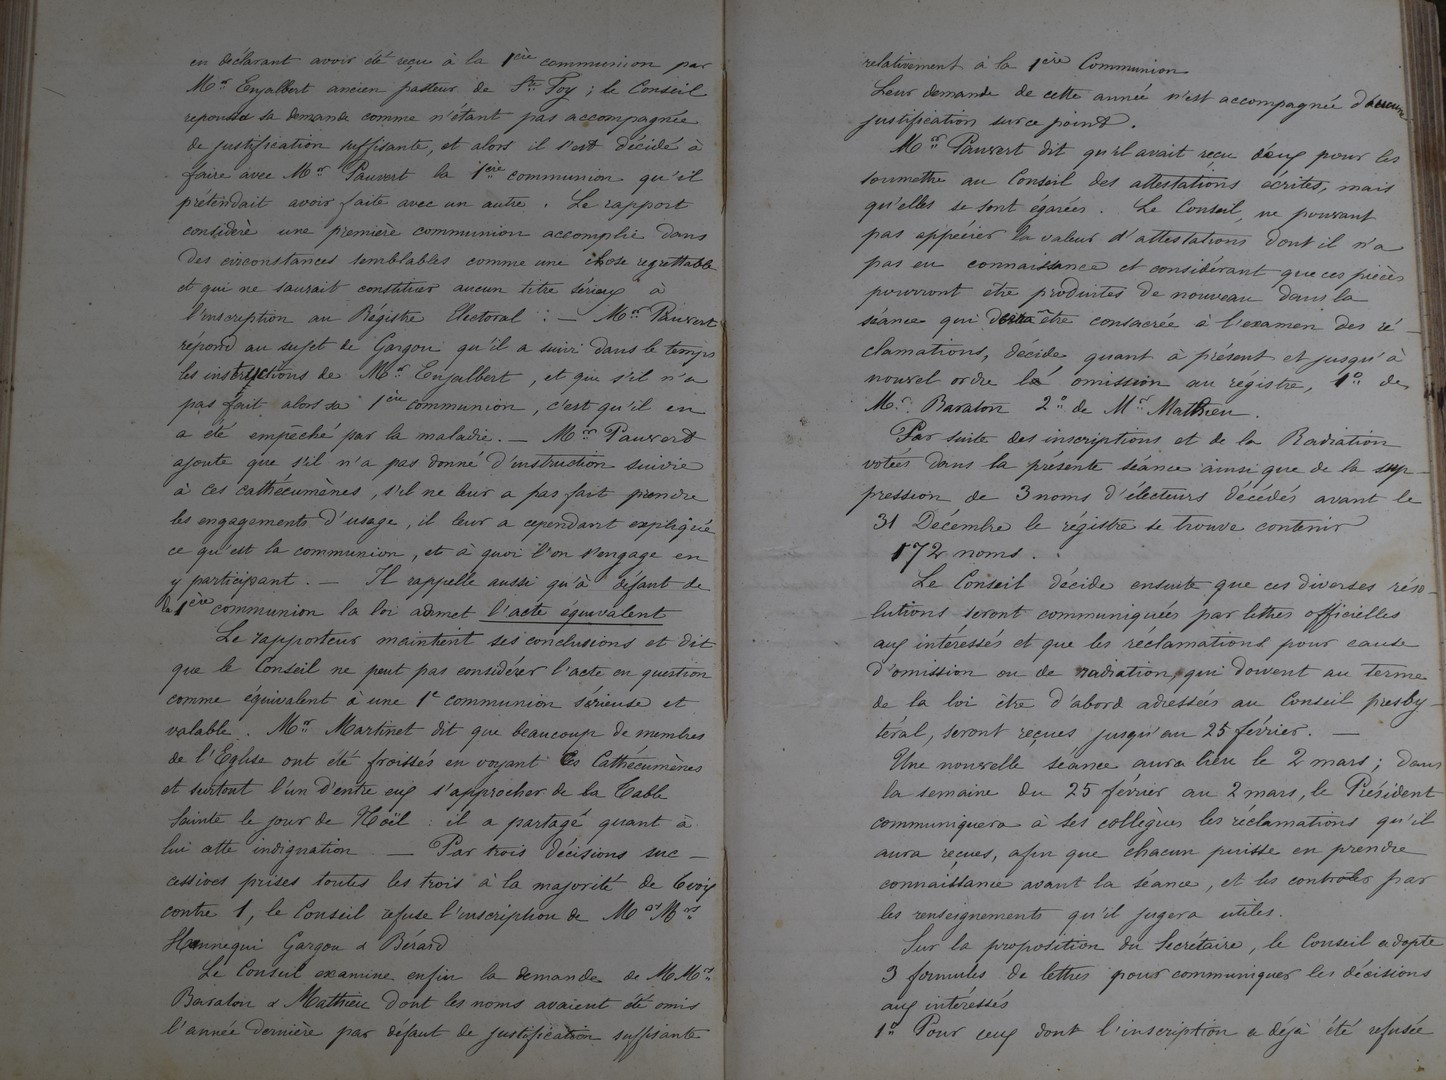 en déclarant avoir été reçu à la 1ère communion par
Mr Enjalbert ancien pasteur de Ste Foy ; le Conseil
repoussa sa demande comme n'étant pas accompagnée
de justification suffisante, et alors il s'est décidé à
faire avec Mr Pauvert la 1ère communion qu'il
prétendait avoir faite avec un autre. Le rapport
considère une première communion accomplie dans
des circonstances semblables comme une chose regrettable
et qui ne saurait constituer aucun titre sérieux à
l'inscription au Régistre Electoral : — Mr Pauvert
répond au sujet de Gargou qu'il a suivi dans le temps
les instructions de Mr Enjalbert, et que s'il n'a
pas fait alors sa 1ère communion, c'est qu'il en
a été empêché par la maladie. — Mr Pauvert
ajoute que s'il n'a pas donné d'instruction suivie
à ces cathécumènes, s'il ne leur a pas fait prendre
les engagements d'usage, il leur a cependant expliqué
ce qu'est la communion, et à quoi l'on s'engage en
y participant. — Il rappelle aussi qu'à défaut de
la 1ère communion la loi admet l'acte équivalent
Le rapporteur maintient ses conclusions et dit
que le Conseil ne peut pas considérer l'acte en question
comme équivalent à une 1e communion sérieuse et
valable. Mr Martinet dit que beaucoup de membres
de l'Eglise ont été froissés en voyant les Cathécumènes
et surtout l'un d'entre eux s'approcher de la Table
Sainte le jour de Noël : il a partagé quant à
lui cette indignation — Par trois décisions suc —
cessives prises toutes les trois à la majorité de 6 voix
contre 1, le Conseil refuse l'inscription de Mrs Mrs
Hennequi Gargou & Bérard
Le Conseil examine enfin la demande de MMrs
Baralon & Mathieu dont les noms avaient été omis
l'année dernière par défaut de justification suffisante
relativement à la 1ère Communion
Leur demande de cette année n'est accompagnée d'aucune
justification sur ce point.
Mr Pauvert dit qu'il avait reçu d'eux pour les
soumettre au Conseil des attestations écrites, mais
qu'elles se sont égarées. Le Conseil, ne pouvant
pas apprécier la valeur d'attestations dont il n'a
pas eu connaissance et considérant que ces pièces
pourront être produites de nouveau dans la
séance qui devra être consacrée à l'examen des ré —
clamations, décide quant à présent et jusqu'à
nouvel ordre l'omission au régistre, 1o de
Mr. Baralon 2o de Mr Mathieu.
Par suite des inscriptions et de la Radiation
votées dans la présente séance ainsi que de la sup —
pression de 3 noms d'électeurs décédés avant le
31 Décembre le régistre se trouve contenir
172 noms.
Le Conseil décide ensuite que ces diverses réso —
lutions seront communiquées par lettres officielles
aux intéressés et que les réclamations pour cause
d'omission ou de radiation, qui doivent au terme
de la loi être d'abord adressées au Conseil presby —
téral, seront reçues jusqu'au 25 février. —
Une nouvelle séance aura lieu le 2 mars ; dans
la semaine du 25 février au 2 mars, le Président
communiquera à ses collègues les réclamations qu'il
aura reçues, afin que chacun puisse en prendre
connaissance avant la séance, et les contrôler par
les renseignements qu'il jugera utiles.
Sur la proposition du Secrétaire, le Conseil adopte
3 formules de lettres pour communiquer les décisions
aux intéressés
1o Pour ceux dont l'inscription a déjà été refusée